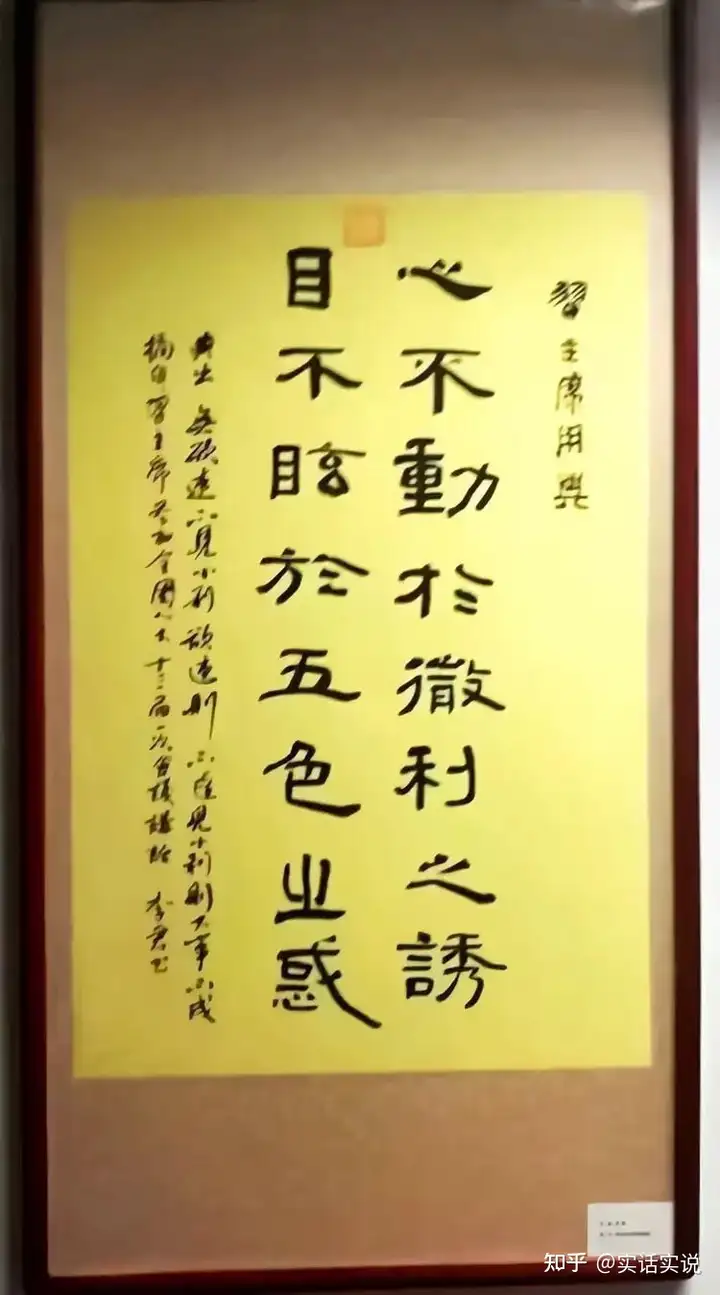 習主席用典
心不動於微利之誘
目不眩於五色之惑
典出 無欲速不見小利欲速則不達見小利則大事不成
摘自習主席參加全國人大十三屆一次會議講話 李
知乎 @实话实说